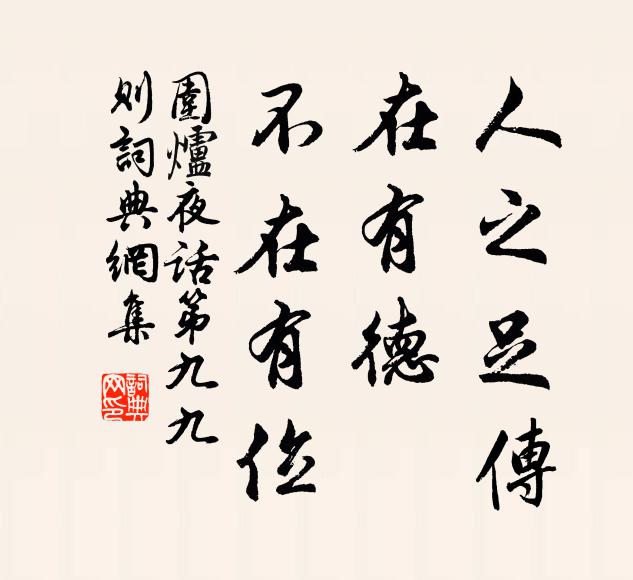 人之足傳
在有德
不在有位
圍爐夜話第九九
則詞典網集
詞典
网印